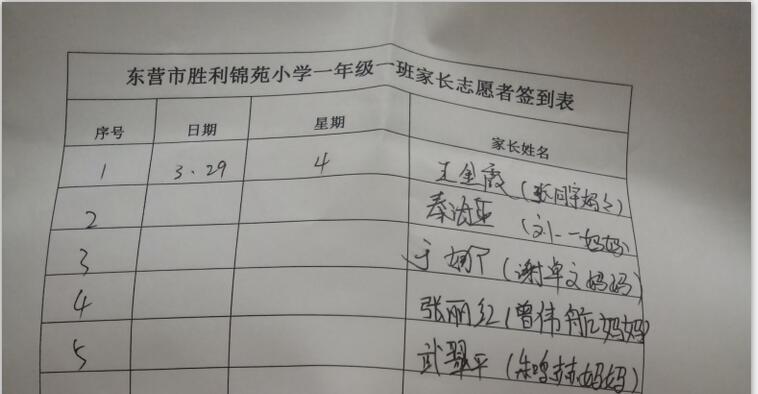 东营市胜利锦苑小学一年级一班家长志愿者签到表
序号 日期 星期 家长姓名
1 3.29 4 王金霞(张同宇妈妈)
2 秦 (刘一一妈妈)
3 于 (谢卓文妈妈)
4 张丽红(曾伟航妈妈)
5 武翠平(朱鸣赫妈妈)